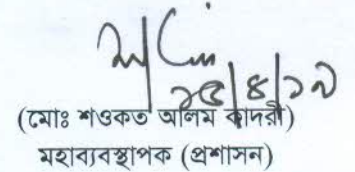 ২৫/৪/১৯
(মোঃ শওকত আলম কাদরী)
মহাব্যবস্থাপক (প্রশাসন)